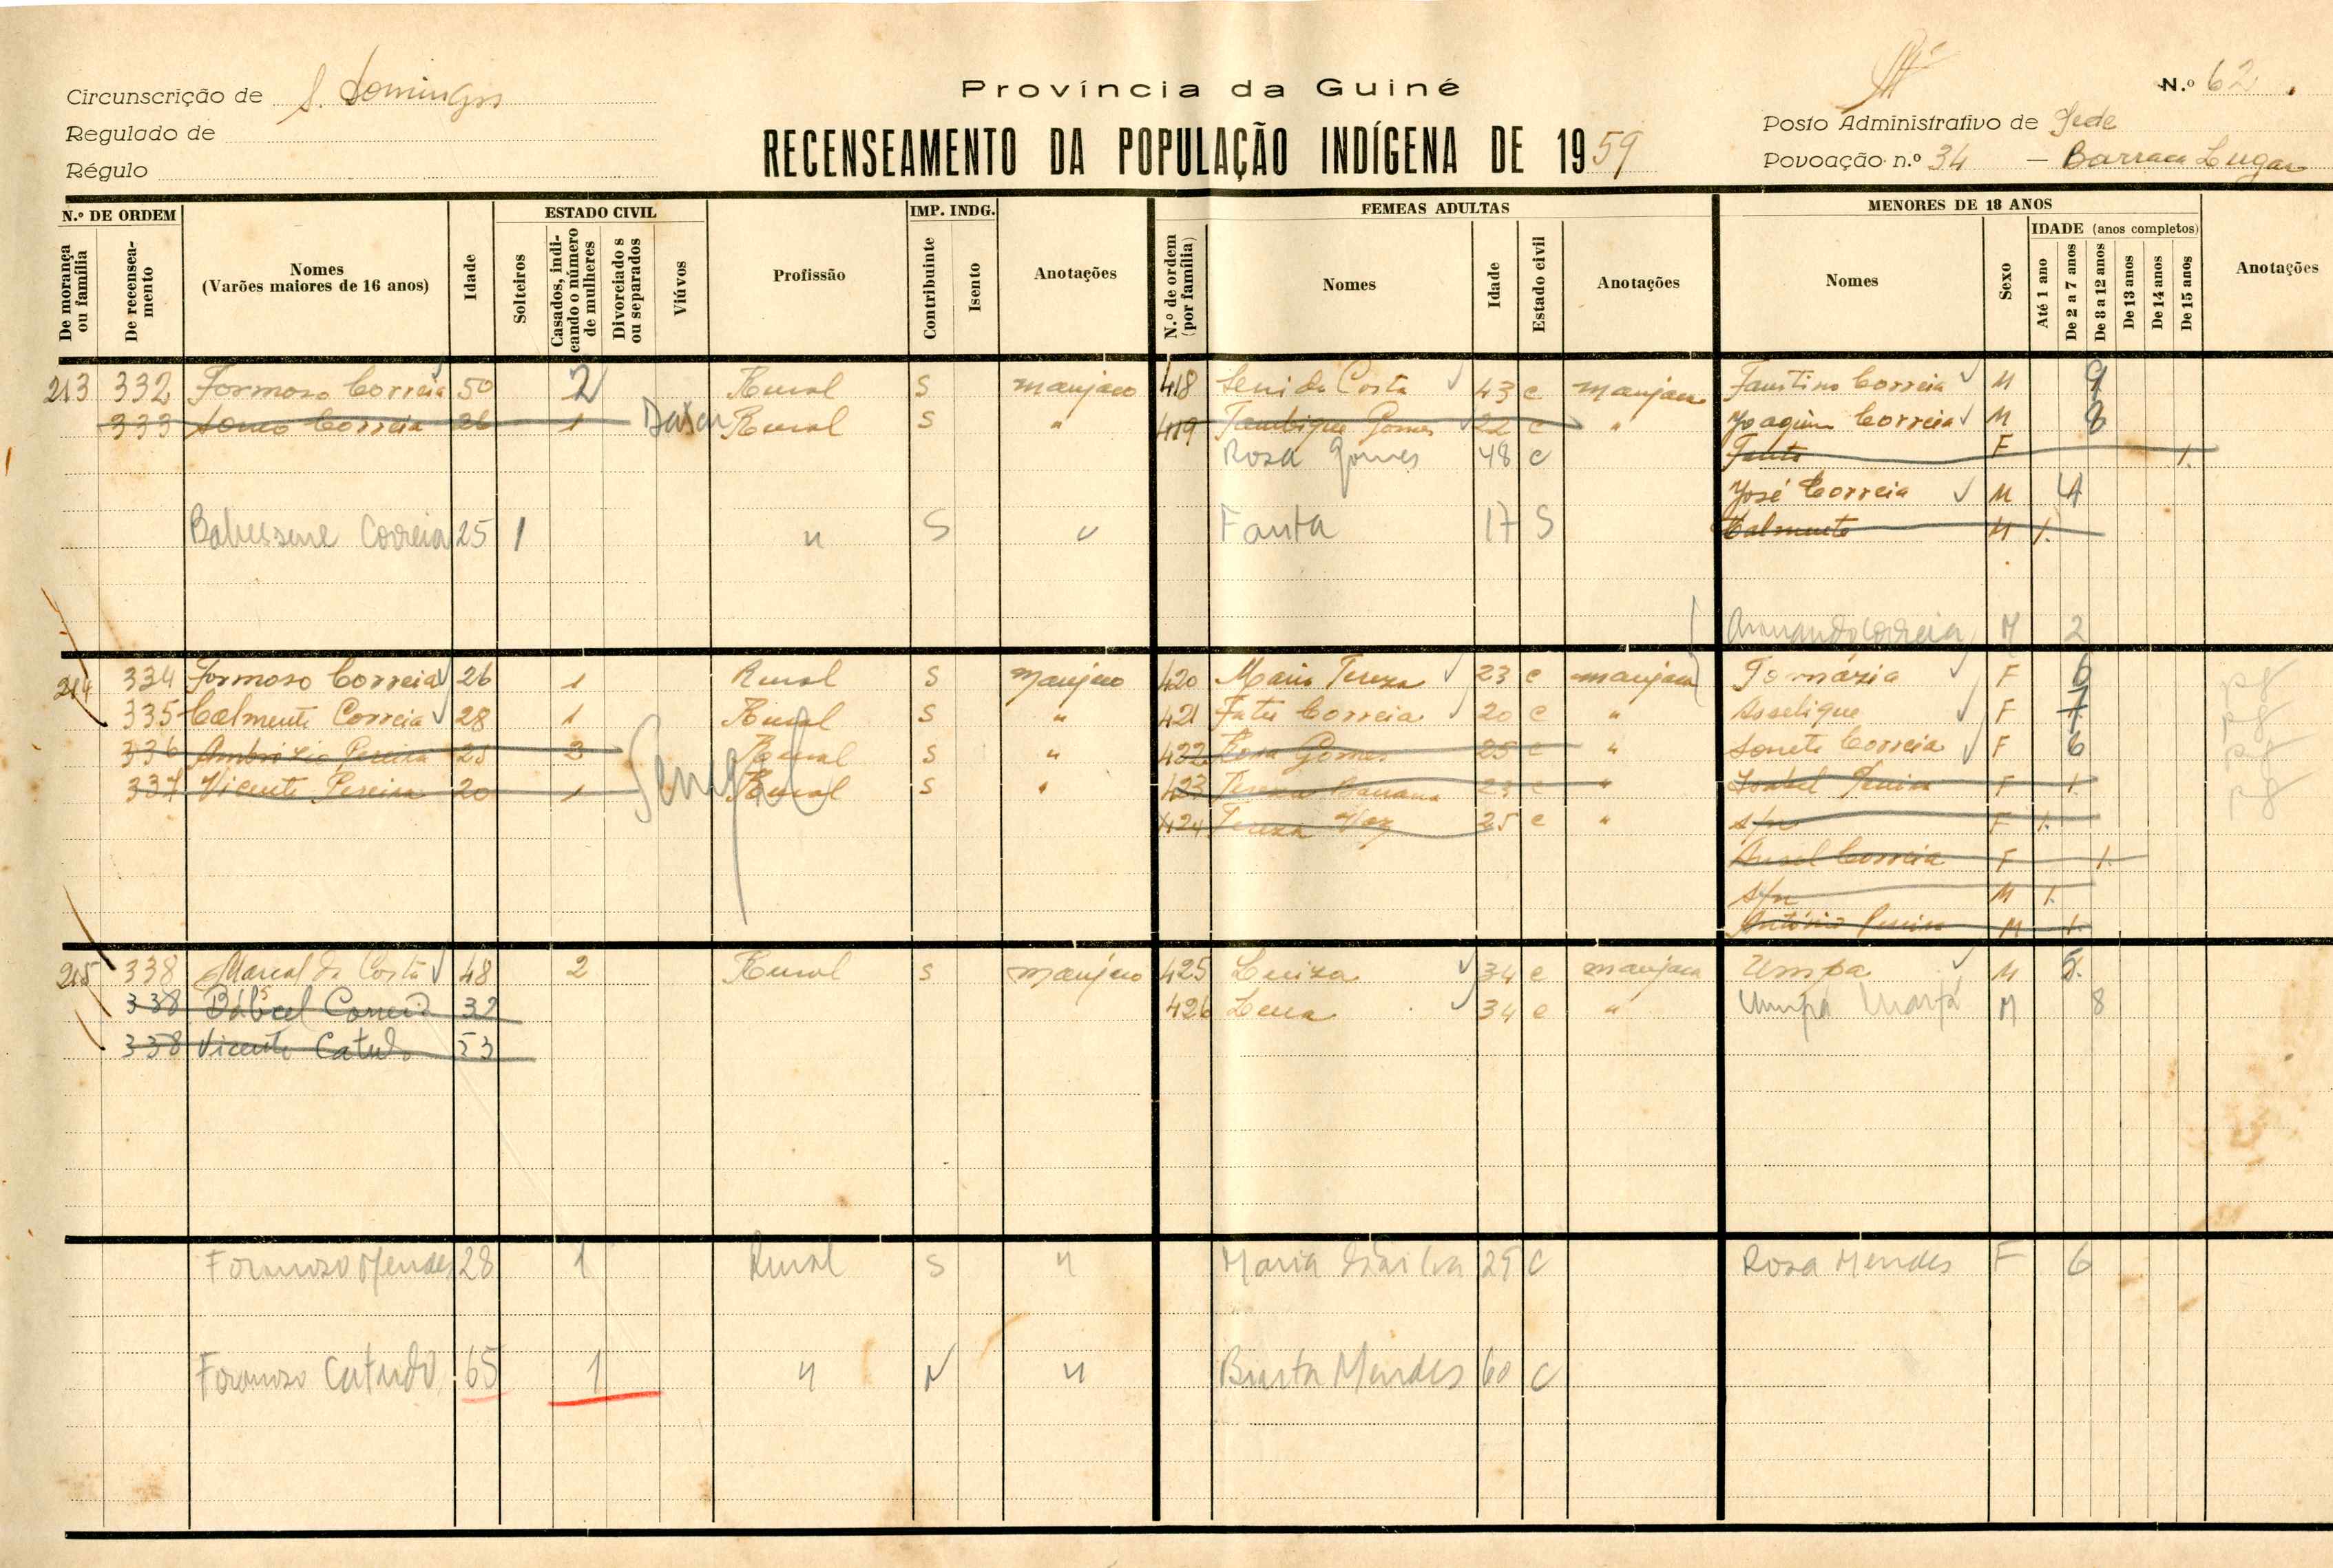 Circunscrição de S. Domingos
Regulado de
Régulo
Província da Guiné
RECENSEAMENTO DA POPULAÇÃO INDÍGENA DE 1959
N.º 62.
Posto Administrativo de Sede
Povoação n.º 34 — Barraca Lugar
N.º DE ORDEM
De morança ou família
De recenseamento
Nomes
(Varões maiores de 16 anos)
Idade
ESTADO CIVIL
Solteiros
Casados, indicando o número de mulheres
Divorciados ou separados
Viúvos
Profissão
IMP. INDG.
Contribuinte
Isento
Anotações
FEMEAS ADULTAS
N.º de ordem (por família)
Nomes
Idade
Estado civil
Anotações
MENORES DE 18 ANOS
Nomes
Sexo
IDADE (anos completos)
Até 1 ano
De 2 a 7 anos
De 8 a 12 anos
De 13 anos
De 14 anos
De 15 anos
Anotações
213 332 Formoso Correia 50 2 Rural S manjaco 418 Seni da Costa 43 c manjaca Faustino Correia M 9
333 Correia 26 1 Rural S " 419 Tambique Gomes 22 c " Joaquim Correia M 8
Rosa Gomes 48 c Fanta F 1.
José Correia M 4
Babessene Correia 25 1 " S " Fanta 17 S Calmente M 1.
Armando Correia M 2
214 334 Formoso Correia 26 1 Rural S manjaco 420 Maria Tereza 23 c manjaca Tomázia F 6 pg
335 Calmente Correia 28 1 Rural S " 421 Fatu Correia 20 c " Asselique F 7 pg
336 Ambrózio Pereira 25 3 Senegal Rural S " 422 Rosa Gomes 25 c " Correia F 6 pg
337 Vicente Pereira 20 1 Rural S " 423 Tereza 23 c " Isabel Pereira F 1. pg
424 Tereza Vaz 25 c " s/n F 1.
Correia F 1.
s/n M 1.
António Pereira M 1.
215 338 Marcal da Costa 48 2 Rural S manjaco 425 Luiza 34 c manjaca Umpa M 5.
338 Correia 32 426 Lena 34 c " Umpa M 8
338 Vicente Catudo 53
Formoso Mendes 28 1 Rural S " Maria da Silva 25 C Rosa Mendes F 6
Formoso Catudo 65 1 " " Mendes 60 C